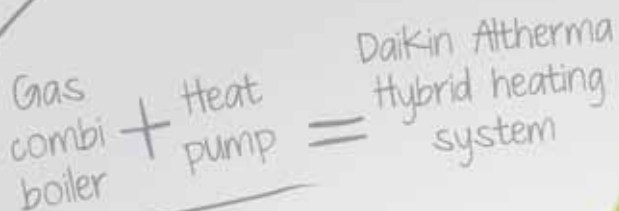 Gas
combi
boiler
+
Heat
pump
=
Daikin Altherma
Hybrid heating
system